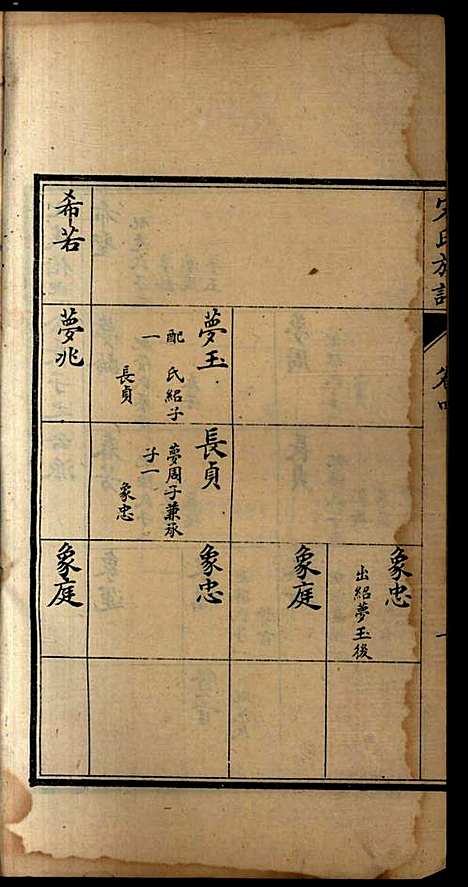 宋氏族譜
象忠
出紹夢玉後
象庭
夢玉
配 氏紹子
一
長貞
長貞
夢周子兼承
子一
象忠
象忠
希若
夢兆
象庭